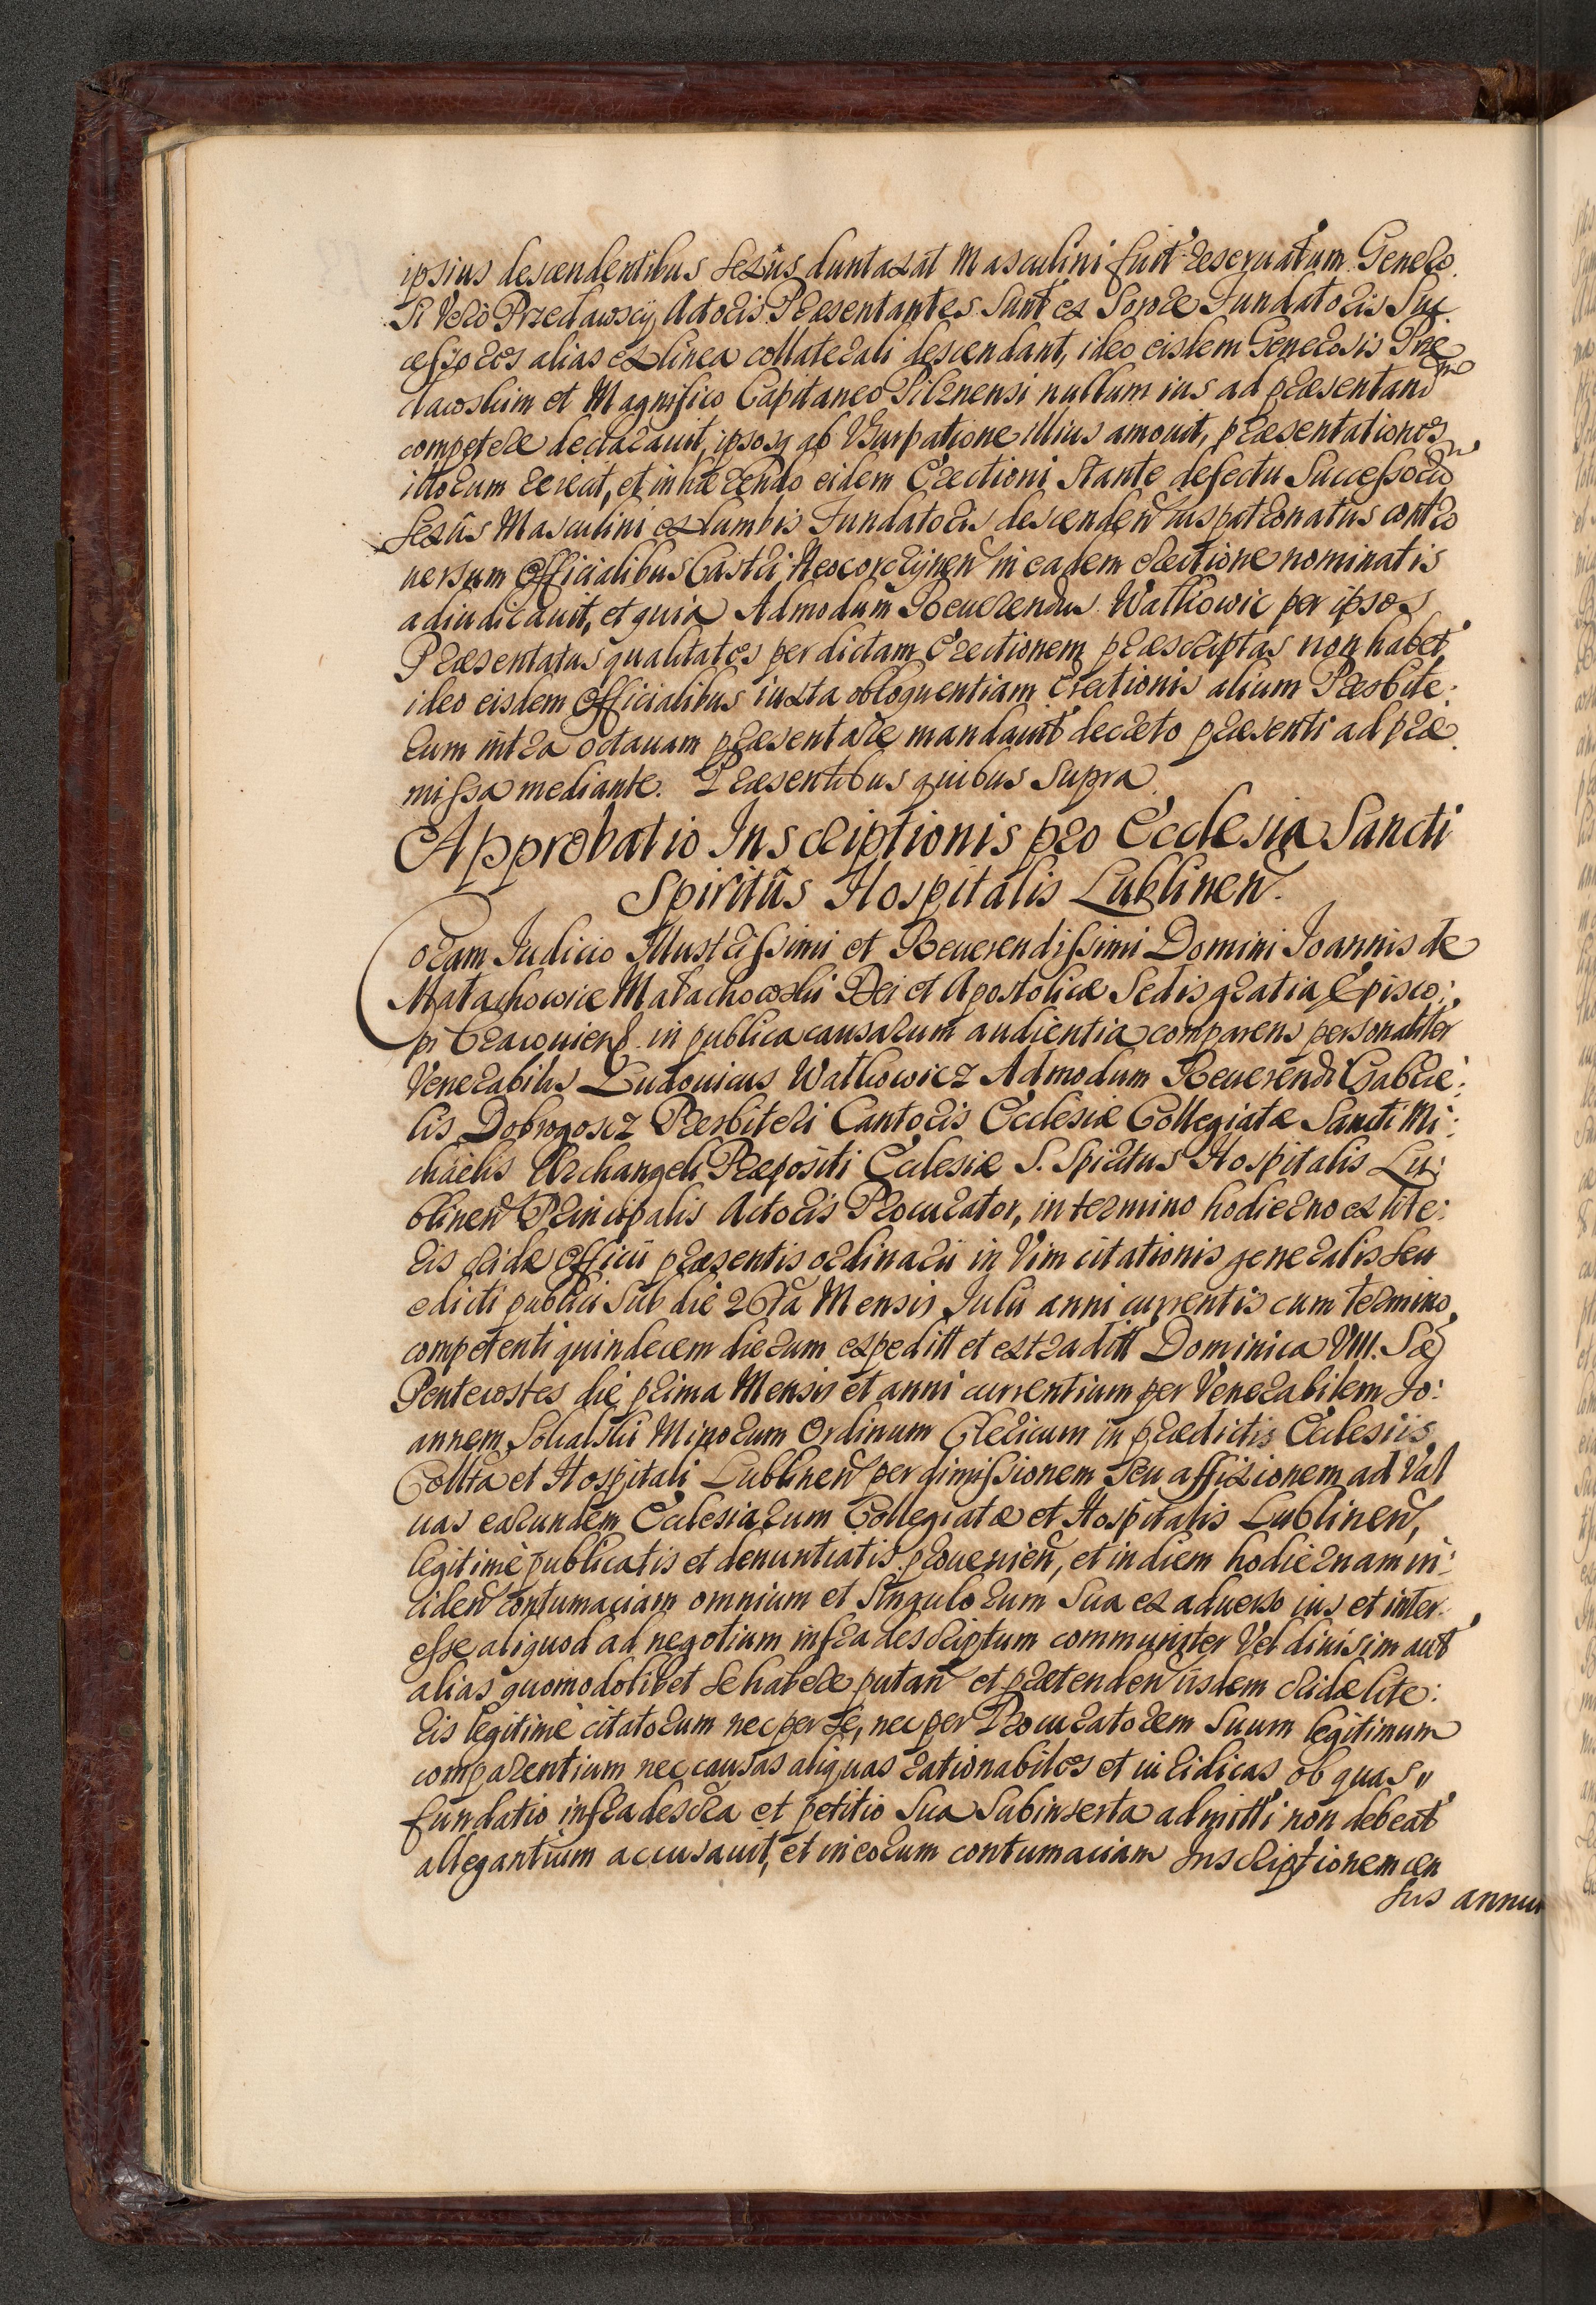 ipsius descendentibus sexûs duntaxat Masculini fuit reseruatum. Genero
si verò Przedawscÿ Actoris Præsentantes sunt ex sorore Fundatoris Suc
cessores alias ex linea collaterali descendant, ideo eisdem Generosis Prze
dawskim et Magnifico Capitaneo Pilznensi nullum ius ad præsentand
competere declarauit, ipsosq ab Vsurpatione illius amouit, præsentationes
illorum reiecit, et inhærendo eidem Erectioni stante defectu Successorũ
sexûs Masculini ex lumbis Fundatoris descenden̄ iuspatronatus contro
uersum Officialibus Castri Neocorczynen̄ in eadem erectione nominatis
adiudicauit, et quia Admodum Reuerendus Walkowic per ipsos
Præsentatus qualitates per dictam Erectionem præscriptas non habet,
ideo eisdem Officialibus iuxta obloquentiam Erectionis alium Præsbite:
rum intra octauam præsentare mandauit decreto præsenti ad præ
missa mediante. Præsentibus quibus supra.
Approbatio Inscriptionis pro Ecclesia Sancti
Spiritûs Hospitalis Lublinen̄.
Coram Iudicio Illustrissimi et Reuerendissimi Domini Ioannis de
Małachowice Małachowski Dei et Apostolicæ Sedis gratia Episco:
pi Cracouiens. in publica causarum audientia comparens personaliter
Venerabilis Ludouicus Walkowicz Admodum Reuerendi Gabrie:
lis Dobrogosz Præsbiteri Cantoris Ecclesiæ Collegiatæ Sancti Mi:
chaelis Archangeli Præpositi Ecclesiæ S. Spiritus Hospitalis Lu:
blinen̄ Principalis Actoris Procurator, in termino hodierno ex lite:
ris cridæ Officii præsentis ordinarii in vim citationis generalis seu
edicti publici sub die 26ta Mensis Julii anni currentis cum termino
competenti quindecem dierum expeditt et extraditt Dominica VIII. Sæ
Pentecostes die prima Mensis et anni currentium per Venerabilem Io:
annem Sokalski Minorum Ordinum Clericum in prædictis Ecclesiis
Collta et Hospitali Lublinen̄ per dimissionem seu affixionem ad Val
uas earundem Ecclesiarum Collegiatæ et Hospitalis Lublinen̄,
legitimè publicatis et denuntiatis prouenien̄, et in diem hodiernam in:
ciden̄ contumaciam omnium et singulorum sua ex aduerso ius et inter
esse aliquod ad negotium infra descriptum communiter vel diuisim aut
alias quomodolibet se habere putan̄ et prætenden̄ iisdem cridæ lite:
ris legitimè citatorum nec per se, nec per Procuratorem suum legitimum
comparentium nec causas aliquas rationabiles et iuridicas ob quas
fundatio infradescra et petitio sua subinserta admitti non debeat
allegantium accusauit, et in eorum contumaciam Inscriptionem cen
sus annui